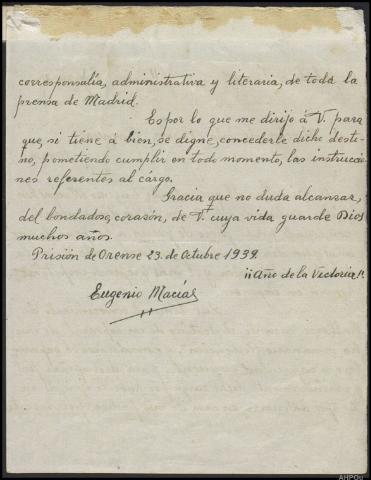 corresponsalía, administrativa y literaria, de toda la
prensa de Madrid.
Es por lo que me dirijo á V. para
que, si tiene á bien, se digne, concederle dicho desti-
no, pometiendo cumplir en todo momento, las instruccio-
nes referentes al cárgo.
Gracia que no duda alcanzar,
del bondadoso, corazón, de V. cuya vida guarde Dios
muchos años.
Prisión de Orense 23. de Octubre 1939.
¡¡Año de la Victoria!!
Eugenio Macías
AHPOu